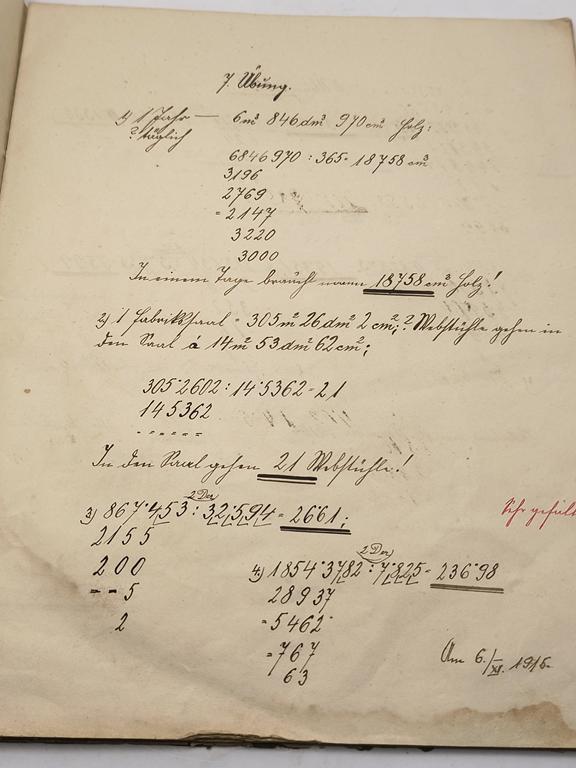 7. Übung.
1) 1 Jahr — 6 m³ 846 dm³ 970 cm³ Holz:
? täglich
6846970 : 365 = 18758 cm³
3196
2769
= 2147
3220
3000
In einem Tage braucht wann 18758 cm³ Holz!
2) 1 Fabrikssaal = 305 m² 26 dm² 2 cm²; ? Webstühle gehen in
den Saal á 14 m² 53 dm² 62 cm²;
305·2602 : 14·5362 = 21
145362
- - - - - -
In den Saal gehen 21 Webstühle!
2 Dez
3) 867·453 : 32·594 = 2661;
2155
200
- - 5
2
2 Dez
4.) 1854·3782 : 7·825 = 236·98
28937
= 5462
= 767
63
Am 6./XI. 1915.